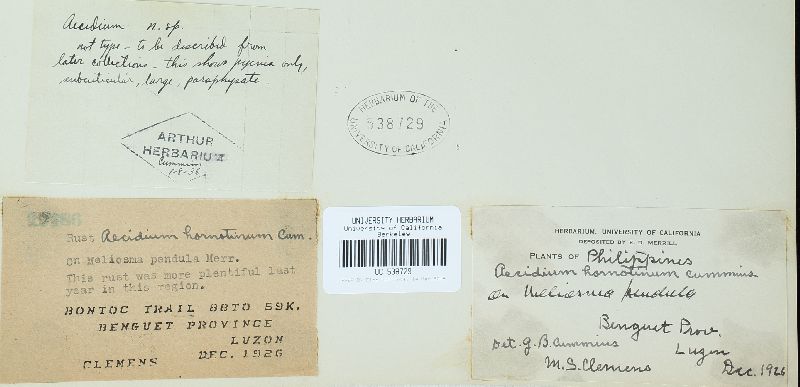 Aecidium n. sp.
not type - to be described from
later collections - this shows pycnia only,
subcuticular, large, paraphysate
ARTHUR
HERBARIUM
Cummins
1-8-36
HERBARIUM OF THE
538729
UNIVERSITY OF CALIFORNIA
Rust Aecidium hornotinum Cum.
On Meliosma pendula Merr.
This rust was more plentiful last
year in this region.
BONTOC TRAIL 88TO 59K.
BENGUET PROVINCE
LUZON
CLEMENS DEC. 1926
UNIVERSITY HERBARIUM
University of California
Berkeley
UC 538729
HERBARIUM, UNIVERSITY OF CALIFORNIA
DEPOSITED BY E. D. MERRILL
PLANTS OF Philippines
Aecidium hornotinum Cummins
on Meliosma pendula
Benguet Prov.
Det. G. B. Cummins Luzon
M. S. Clemens Dec. 1926